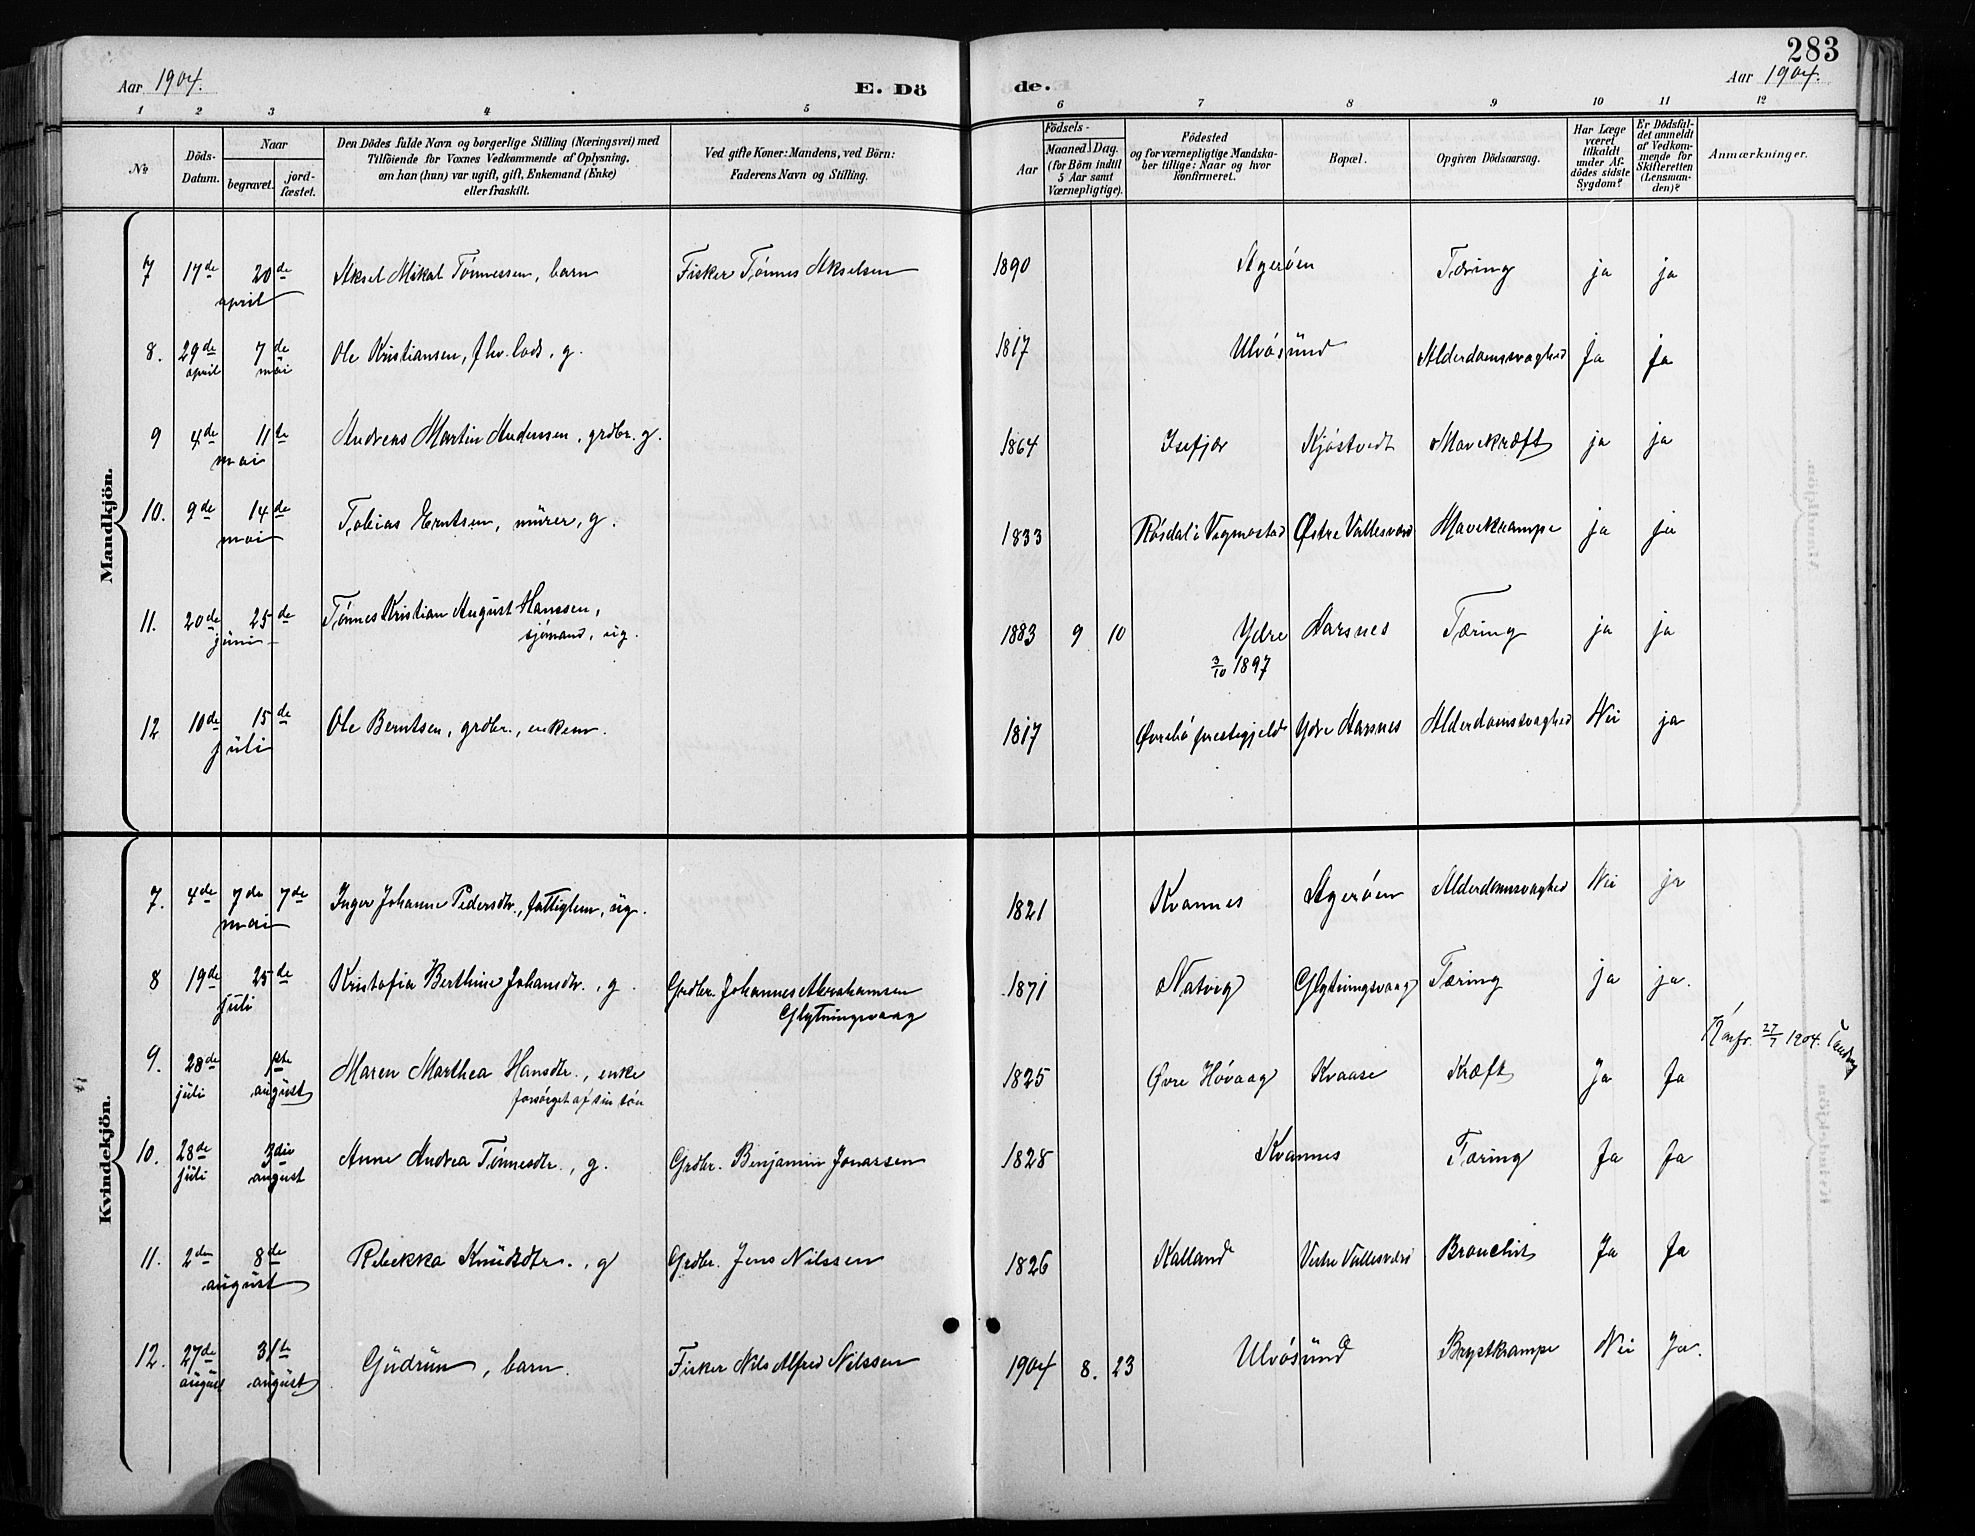 283
Aar 1904. E. Dö
de. Aar 1904.
1 2 3 4 5 6 7 8 9 10 11 12
No
Döds-Datum.
Naar
begravet.
jord-fæstet.
Den Dödes fulde Navn og borgerlige Stilling (Næringsvei) med
Tilföiende for Voxnes Vedkommende af Oplysning,
om han (hun) var ugift, gift, Enkemand (Enke)
eller fraskilt.
Ved gifte Koner: Mandens, ved Börn:
Faderens Navn og Stilling.
Födsels-
Aar
Maaned Dag.
(for Börn indtil
5 Aar samt
Værnepligtige).
Födested
og for værnepligtige Mandska-
ber tillige: Naar og hvor
konfirmeret.
Bopæl.
Opgiven Dödsaarsag.
Har Læge
været
tilkaldt
under Af-
dödes sidste
Sygdom?
Er Dödsfal-
det anmeldt
af Vedkom-
mende for
Skifteretten
(Lensman-
den)?
Anmærkninger.
Mandkjön.
7 17de 20de Aksel Mikal Tønnessen, barn Fisker Tønnes Akselsen 1890 Agerøen Tæring ja ja
april
8. 29de 7de Ole Kristiansen, fhv. lods, g. 1817 Ulvøsund Alderdomssvaghed Ja Ja
april mai
9 4de 11te Andreas Martin Andersen, grdbr. g. 1864 Isefjær Kjøstvedt Mavekræft ja ja
mai
10. 9de 14de Tobias Berntsen, murer, g. 1833 Røsdal i Vegmostad Østre Vallesværd Mavekrampe ja ja
mai
11. 20de 25de Tønnes Kristian August Hanssen,
juni sjømand, ug. 1883 9 10 Ydre Aarsnes Tæring ja ja
3/10 1897
12 10de 15de Ole Berntsen, grdbr., enkem. 1817 Øvrebø prestegjeld Ydre Aarsnes Alderdomssvaghed Nei ja
juli
Kvindekjön.
7. 4de 7de 7de Inger Johanne Pedersdtr., fattiglem, ug. 1821 Kvannes Agerøen Alderdomssvaghed Nei ja
mai
8 19de 25de Kristofia Berthine Johansdtr., g. Grdbr. Johannes Abrahamsen 1871 Natvig Glytningsvaag Tæring ja ja.
juli Glytningsvaag
27/7 1904.
9. 28de 1ste Maren Marthea Hansdtr., enke 1825 Øvre Høvaag Kvaase Kræft Ja Ja
juli august forsørget af sin søn
10. 28de 3die Anne Andrea Tønnesdtr., g. Grdbr. Benjamin Jonassen 1828 Kvannes Tæring Ja Ja
juli august
11. 2den 8de Rebekka Knudsdtr., g Grdbr. Jens Nilssen 1826 Kalland Vestre Vallesværd Bronchit Ja Ja
august
12. 27de 31te Gudrun, barn. Fisker Nils Alfred Nilssen 1904 8. 23 Ulvøsund Brystkrampe Nei Ja.
august august